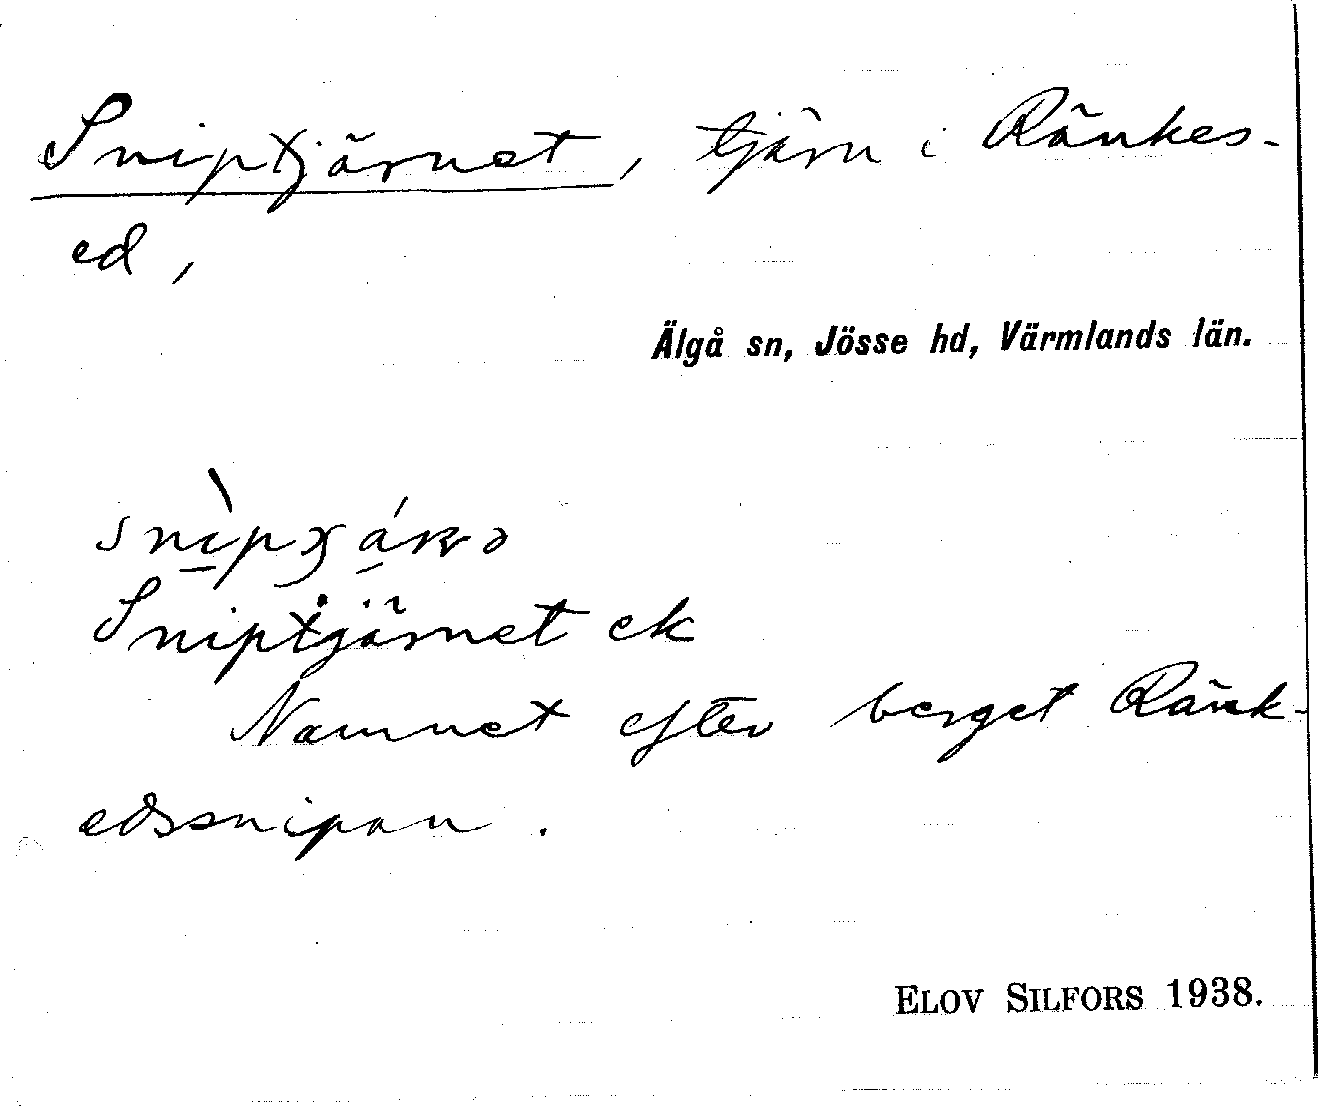 Sniptjärnet, tjärn i Ränkes-
ed,
Älgå sn, Jösse hd, Värmlands län.
Sniptjärnet ek
Namnet efter berget Ränk-
edssnipan.
ELOV SILFORS 1938.